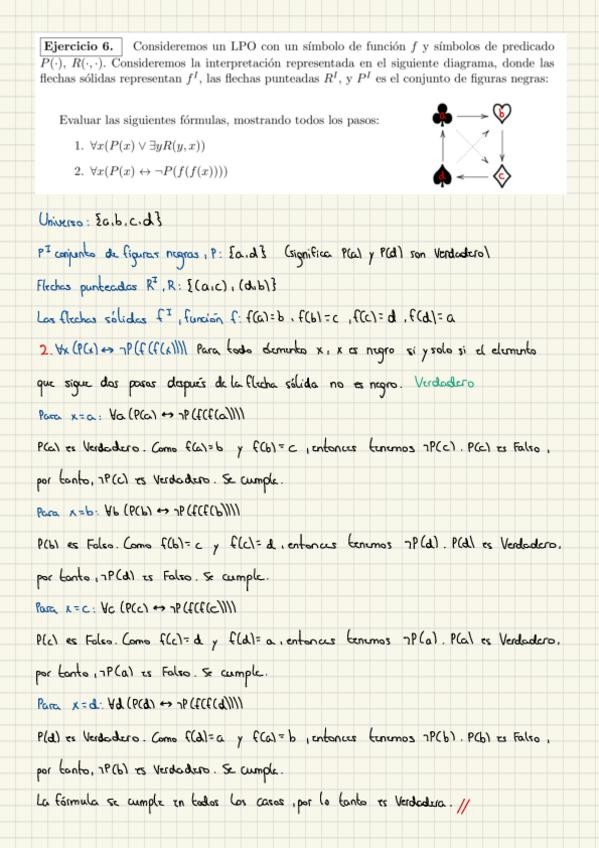 Ejercicio 6. Consideremos un LPO con un símbolo de función f y símbolos de predicado
P(·), R(·,·). Consideremos la interpretación representada en el siguiente diagrama, donde las
flechas sólidas representan f^I, las flechas punteadas R^I, y P^I es el conjunto de figuras negras:
Evaluar las siguientes fórmulas, mostrando todos los pasos:
1. ∀x(P(x) ∨ ∃yR(y,x))
2. ∀x(P(x) ↔ ¬P(f(f(x))))
a b
d c
Universo: {a,b,c,d}
P^I conjunto de figuras negras, P: {a,d} (significa P(a) y P(d) son Verdadero)
Flechas punteadas R^I, R: {(a,c), (d,b)}
Las flechas sólidas f^I, función f: f(a)=b, f(b)=c, f(c)=d, f(d)=a
2. ∀x (P(x) ↔ ¬P(f(f(x)))) Para todo elemento x, x es negro si y solo si el elemento
que sigue dos pasos después de la flecha sólida no es negro. Verdadero
Para x=a: ∀a (P(a) ↔ ¬P(f(f(a))))
P(a) es Verdadero. Como f(a)=b y f(b)=c, entonces tenemos ¬P(c). P(c) es Falso,
por tanto, ¬P(c) es Verdadero. Se cumple.
Para x=b: ∀b (P(b) ↔ ¬P(f(f(b))))
P(b) es Falso. Como f(b)=c y f(c)=d, entonces tenemos ¬P(d). P(d) es Verdadero,
por tanto, ¬P(d) es Falso. Se cumple.
Para x=c: ∀c (P(c) ↔ ¬P(f(f(c))))
P(c) es Falso. Como f(c)=d y f(d)=a, entonces tenemos ¬P(a). P(a) es Verdadero,
por tanto, ¬P(a) es Falso. Se cumple.
Para x=d: ∀d (P(d) ↔ ¬P(f(f(d))))
P(d) es Verdadero. Como f(d)=a y f(a)=b, entonces tenemos ¬P(b). P(b) es Falso,
por tanto, ¬P(b) es Verdadero. Se cumple.
La fórmula se cumple en todos los casos, por lo tanto es Verdadera. //